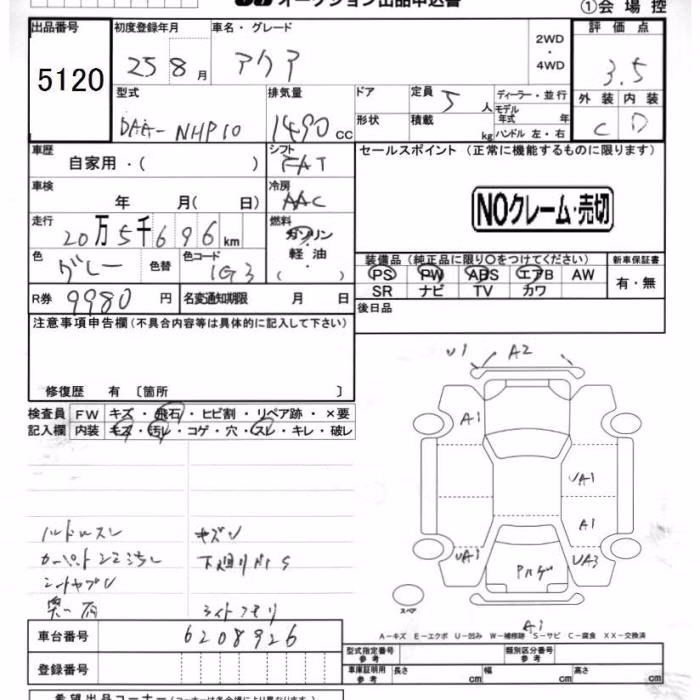 オークション出品申込書
①会場控
出品番号
5120
初度登録年月
25 8 月
車名・グレード
アクア
2WD
・
4WD
評価点
3.5
外装 内装
C D
型式
DAA-NHP10
排気量
1490 cc
ドア
形状
定員 5 人
積載 kg
ディーラー・並行
モデル
年式 年
ハンドル 左・右
車歴
自家用・( )
シフト
FAT
セールスポイント (正常に機能するものに限ります)
NOクレーム・売切
車検
年 月( 日)
冷房
AAC
走行
20万5千696km
燃料
ガソリン
軽油
( ・ )
色
グレー
色替
色コード
1G3
装備品(純正品に限り〇をつけてください)
PS PW ABS エアB AW
SR ナビ TV カワ
新車保証書
有・無
R券 9980 円
名変通知期限 月 日
後日品
注意事項申告欄(不具合内容等は具体的に記入して下さい)
修復歴 有 〔箇所 〕
検査員 FW キズ・飛石・ヒビ割・リペア跡・×要
記入欄 内装 キズ・汚レ・コゲ・穴・スレ・キレ・破レ
U1 A2
A1
UA1
A1
UA1 UA3
A1
ハンドルスレ キズ
下廻りサビS
シートヤブレ
ライトクモリ
スペア
A-キズ E-エクボ U-凹み W-補修跡 S-サビ C-腐食 XX-交換済
車台番号 6208926
登録番号
型式指定番号
参考
類別区分番号
参考
車庫証明用
参考
長さ cm 幅 cm 高さ cm
希望出品コーナー